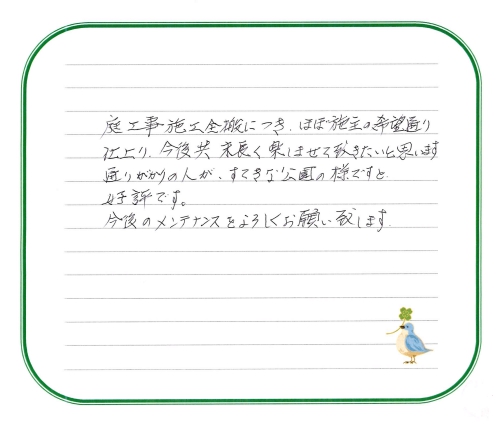 庭工事施工全般につき、ほぼ施主の希望通り
仕上り、今後共 末長く楽しませて頂きたいと思います
通りがかりの人が、すてきな公園の様ですと
好評です。
今後のメンテナンスをよろしくお願い致します。